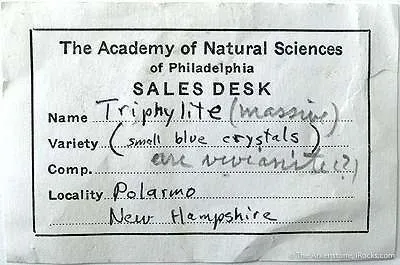 The Academy of Natural Sciences
of Philadelphia
SALES DESK
Name Triphylite (massive)
Variety (small blue crystals)
Comp. are vivianite (?)
Locality Polarmo
New Hampshire
TheArkenstone, iRocks.com